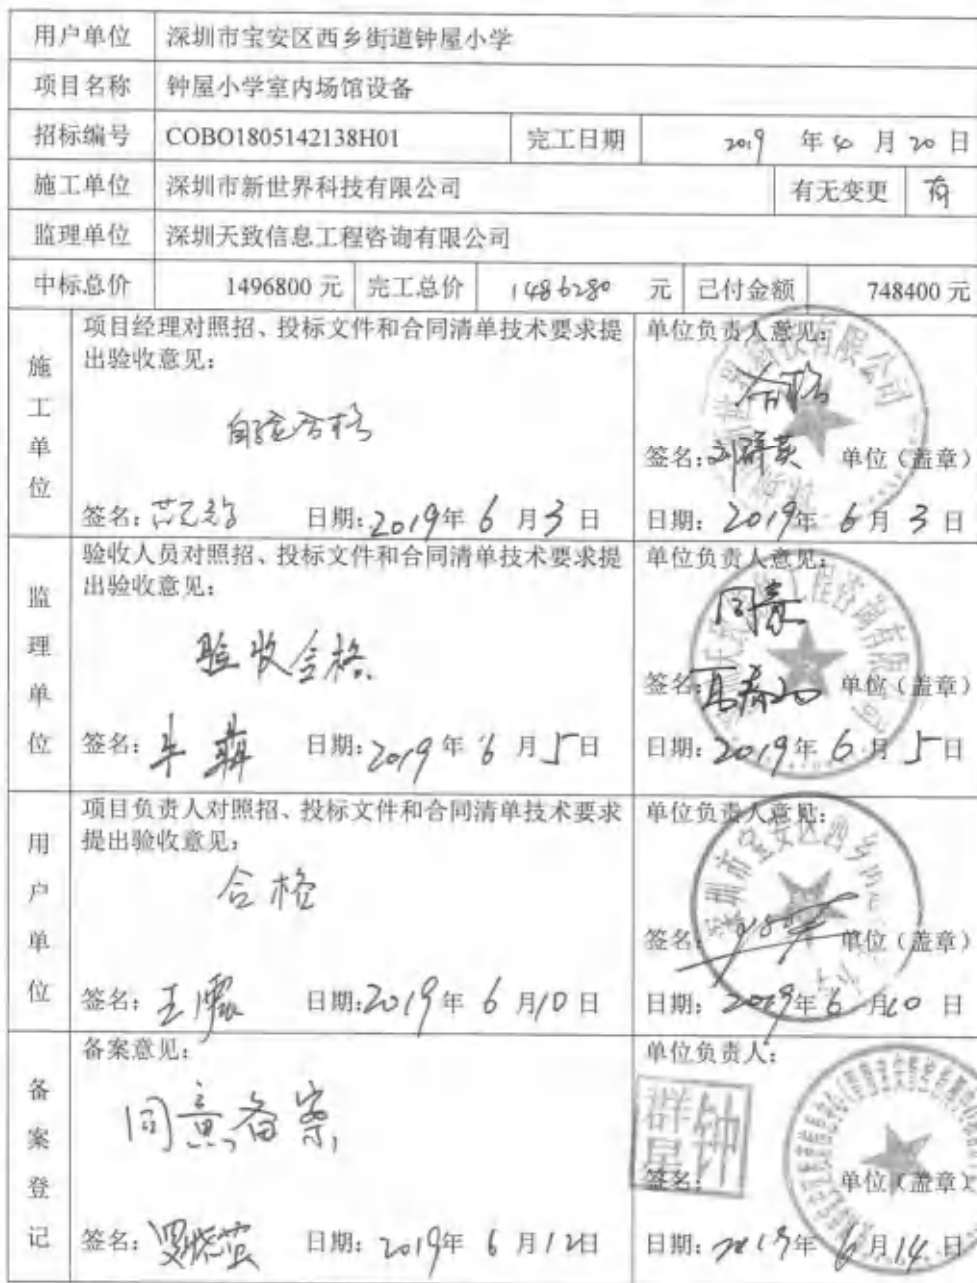 用户单位 深圳市宝安区西乡街道钟屋小学
项目名称 钟屋小学室内场馆设备
招标编号 COBO1805142138H01 完工日期 2019 年 4 月 20 日
施工单位 深圳市新世界科技有限公司 有无变更 有
监理单位 深圳天致信息工程咨询有限公司
中标总价 1496800 元 完工总价 1486280 元 已付金额 748400 元
施工单位
项目经理对照招、投标文件和合同清单技术要求提
出验收意见：
自验合格
签名： 日期：2019年 6 月 3 日
单位负责人意见：
合格
签名：刘群英 单位（盖章）
日期：2019年 6 月 3 日
监理单位
验收人员对照招、投标文件和合同清单技术要求提
出验收意见：
验收合格
签名： 日期：2019 年 6 月 5 日
单位负责人意见：
同意
签名： 单位（盖章）
日期：2019年 6 月 5 日
用户单位
项目负责人对照招、投标文件和合同清单技术要求
提出验收意见：
合格
签名：王 日期：2019年 6 月10 日
单位负责人意见：
签名 单位（盖章）
日期：2019年 6 月10 日
备案登记
备案意见：
同意备案
签名： 日期：2019年 6 月12日
单位负责人：
钟群星
签名： 单位（盖章）
日期：2019年 6 月14 日